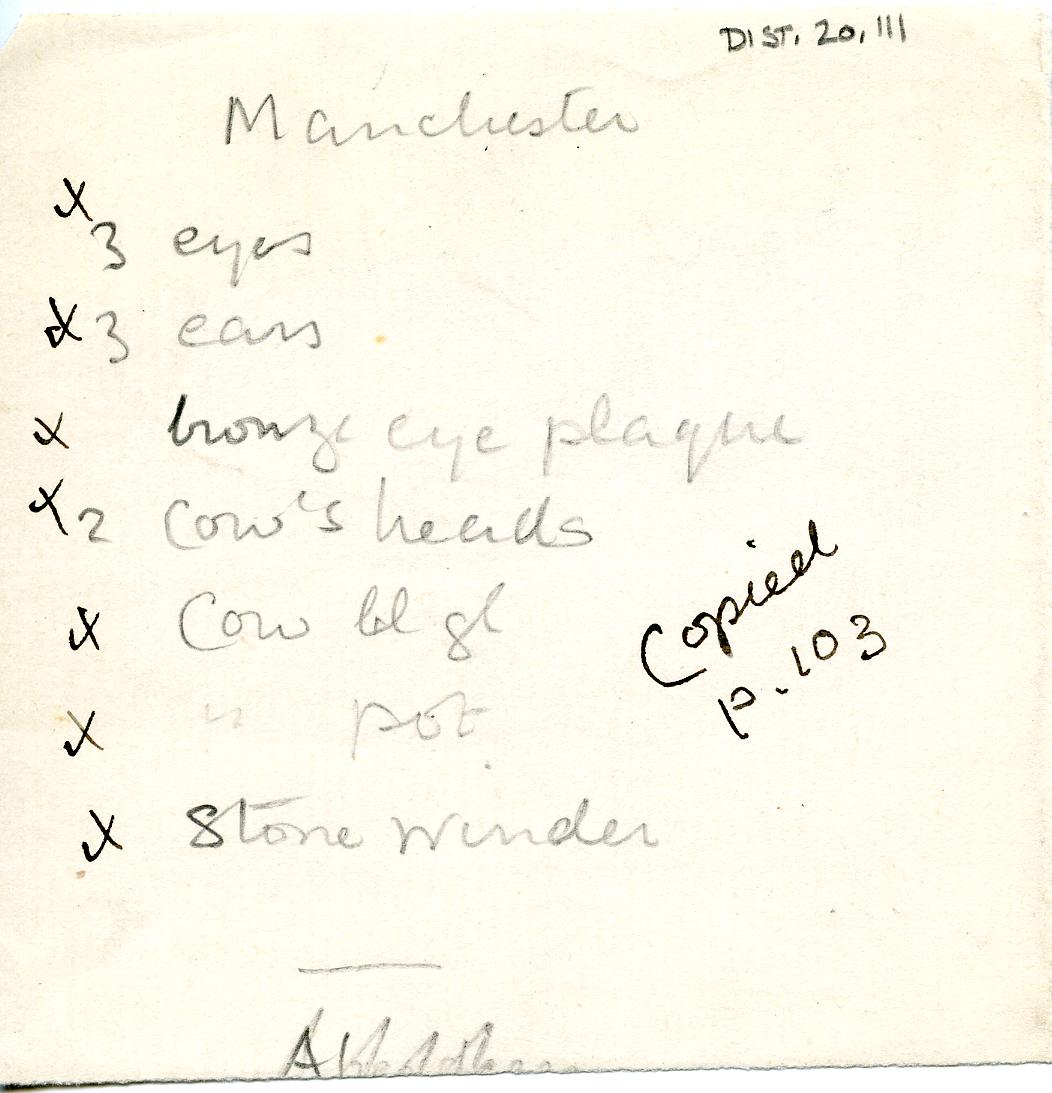 DIST. 20. 111
Manchester
x 3 eyes
x 3 ears
x bronze eye plaque
x 2 Cow's heads
x Cow bl gl
x " pot
x Stone winder
Copied
p. 103